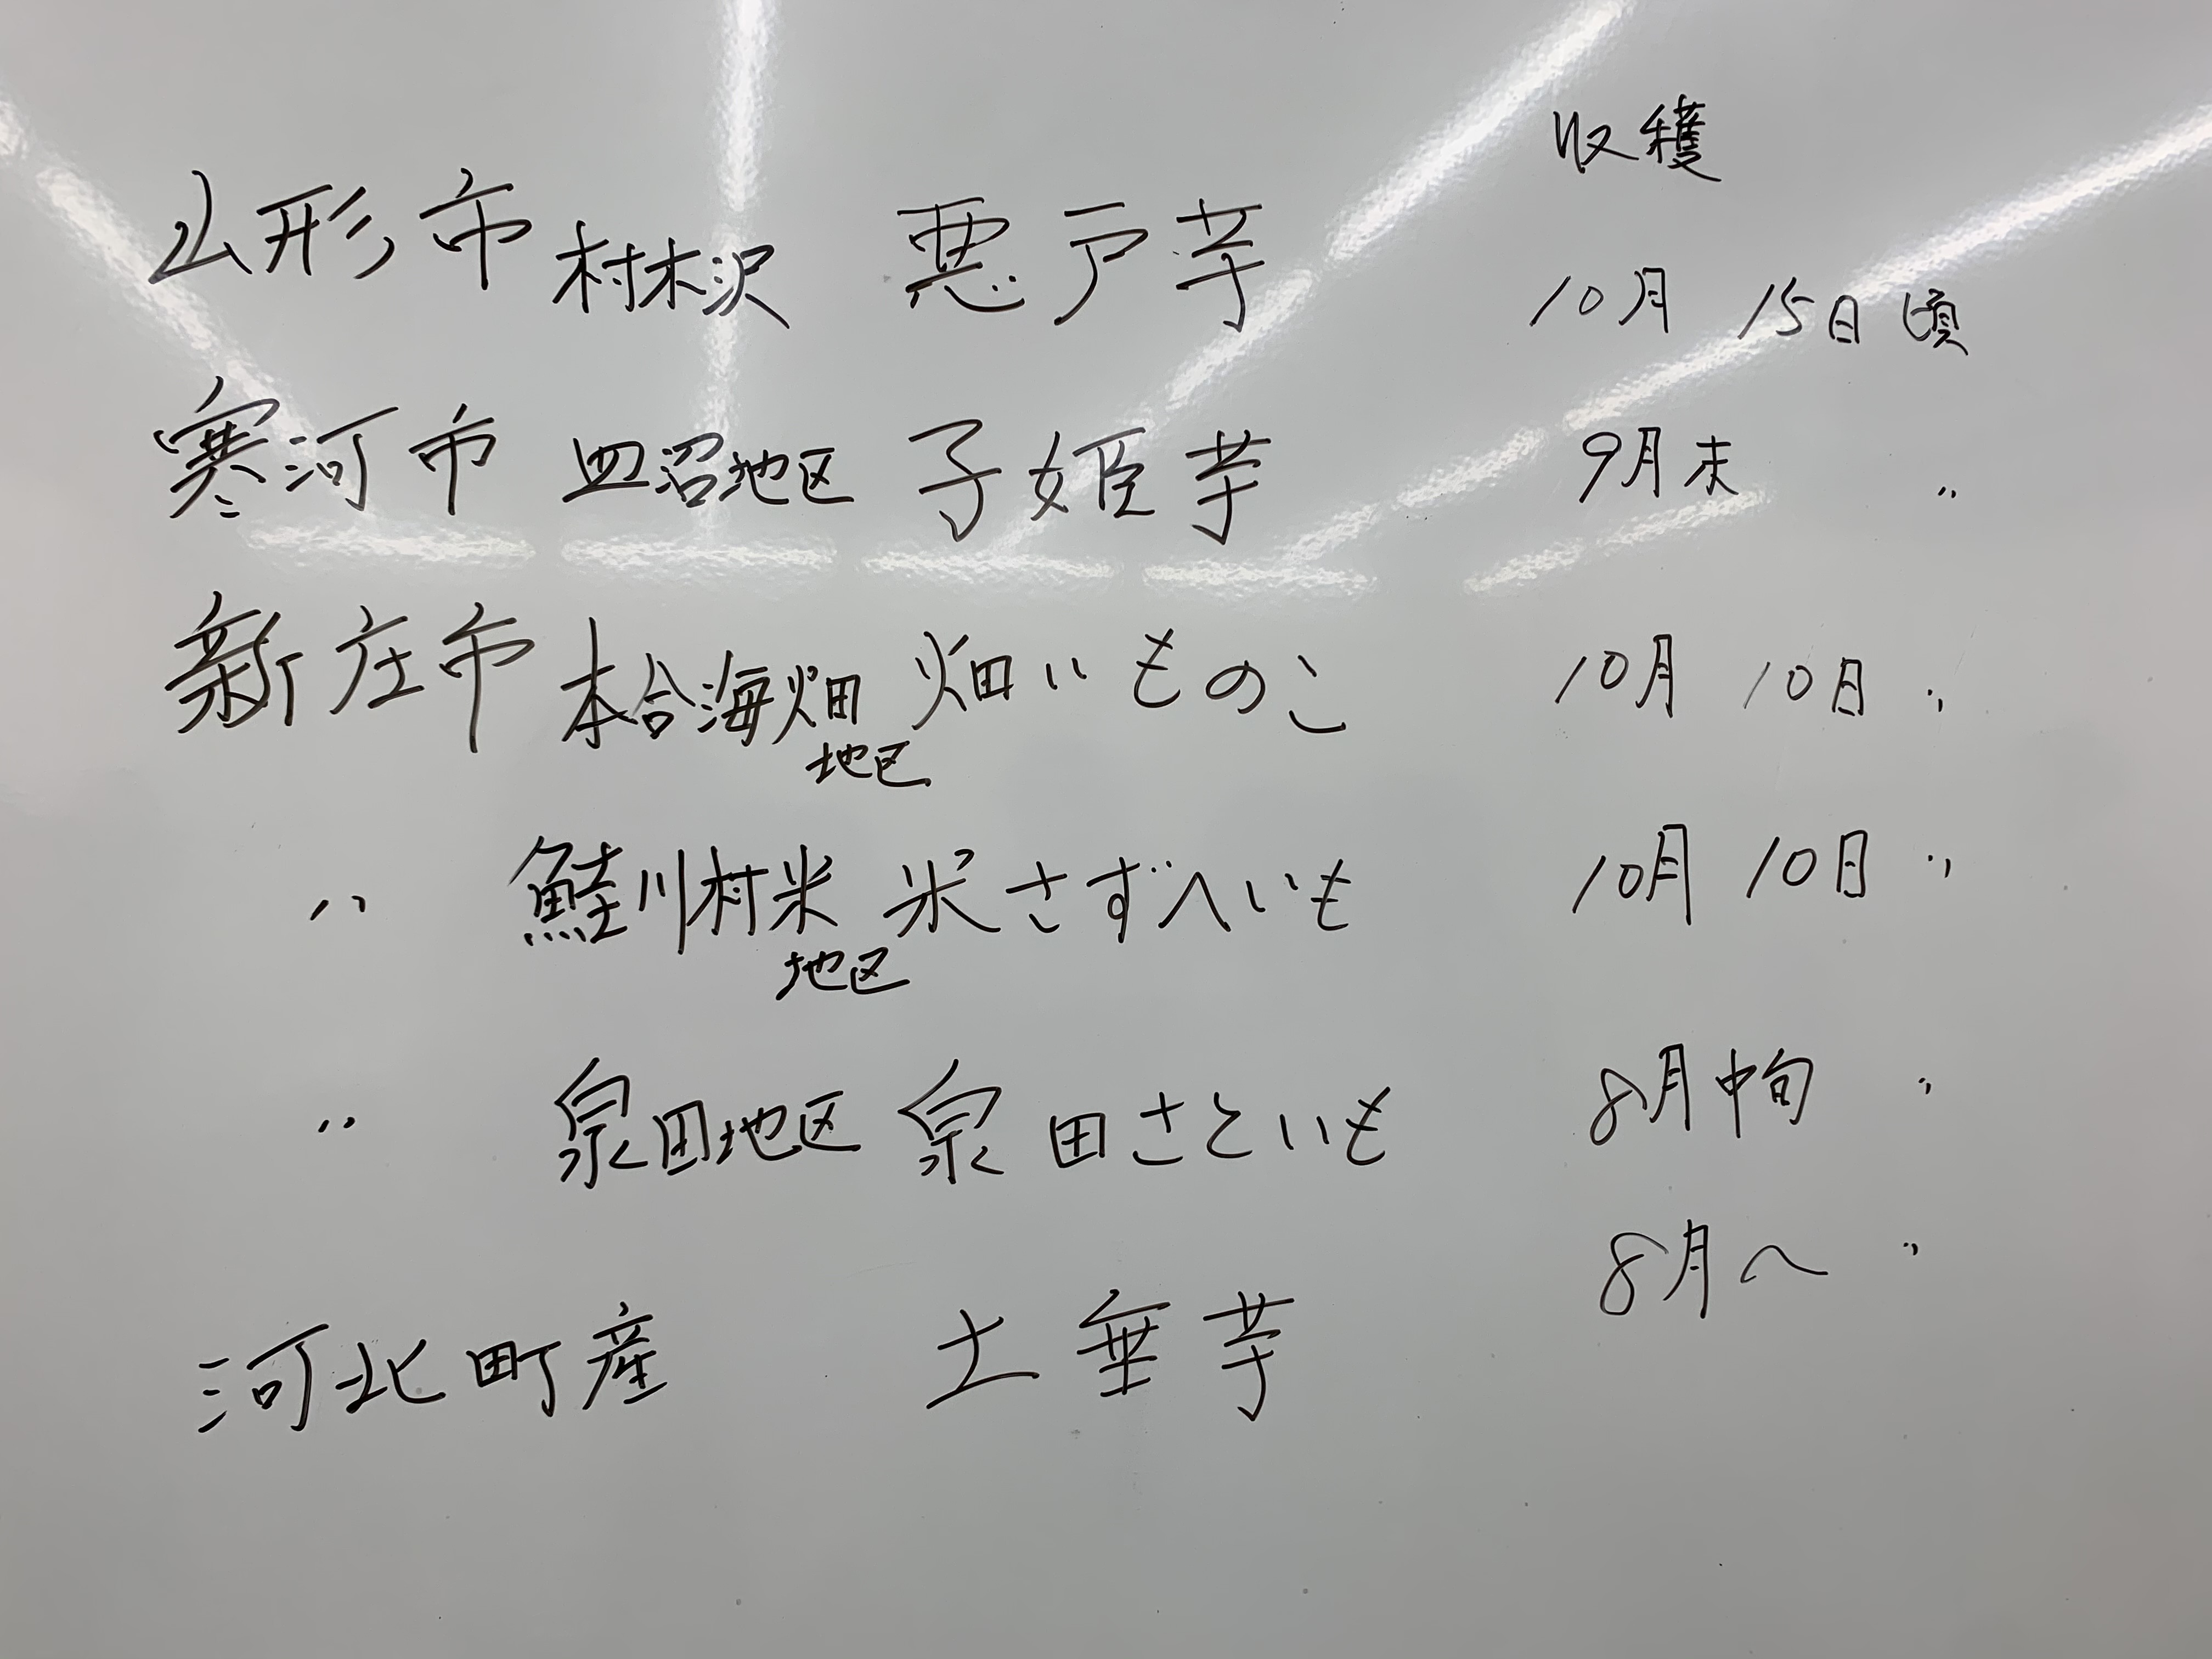 収穫
山形市 村木沢 悪戸芋 10月 15日頃
寒河市 皿沼地区 子姫芋 9月末 〃
新庄市 本合海畑地区 畑いものこ 10月 10日 〃
〃 鮭川村米地区 米さずへいも 10月 10日 〃
〃 泉田地区 泉田さといも 8月中旬 〃
河北町産 土垂芋 8月〜 〃